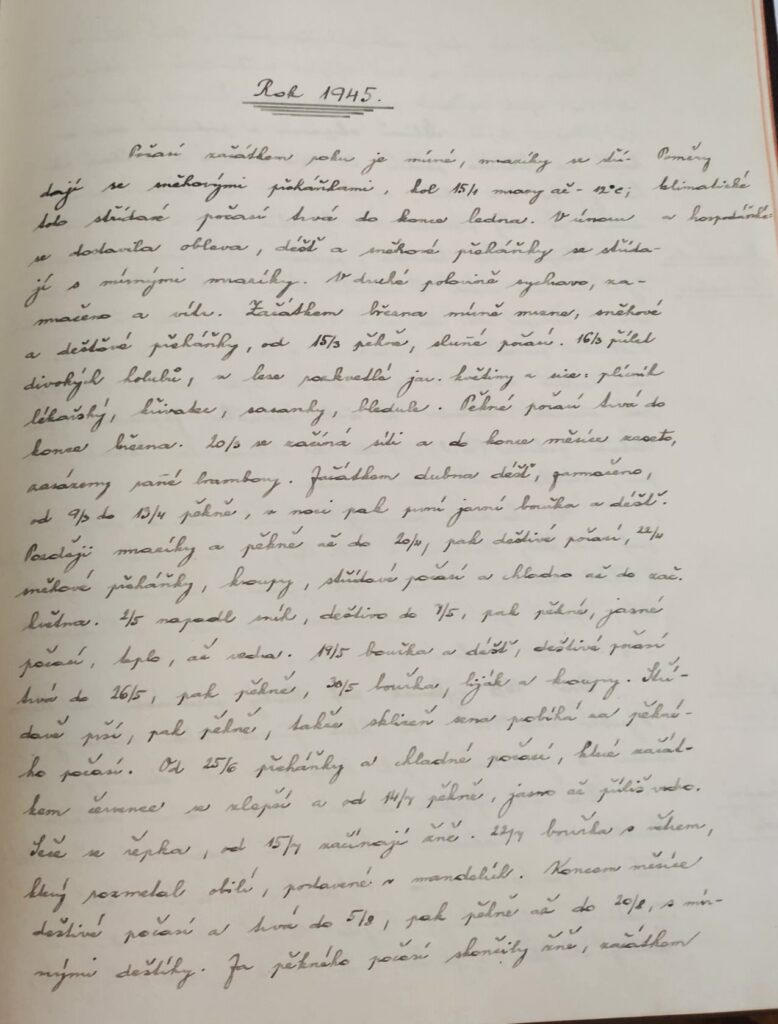 Rok 1945.
Počasí začátkem roku je mírné, mrazíky se stří-
dají se sněhovými přeháňkami, kol 15/1 mrazy až -12°C;
toto střídavé počasí trvá do konce ledna. V únoru
se dostavila obleva, déšť a sněhové přeháňky se střída-
jí s mírnými mrazíky. V druhé polovině sychravo, za-
mračeno a vítr. Začátkem března mírně mrzne, sněhové
a dešťové přeháňky, od 15/3 pěkné, slunné počasí. 16/3 přílet
divokých holubů, v lese rozkvetlé jar. květiny a sice: plicník
lékařský, křivatec, sasanky, bledule. Pěkné počasí trvá do
konce března. 20/3 se začíná síti a do konce měsíce zaseto,
zasázeny rané brambory. Začátkem dubna déšť, zamračeno,
od 9/3 do 13/4 pěkně, v noci pak první jarní bouřka a déšť.
Později mrazíky a pěkně až do 20/4, pak deštivé počasí, 22/4
sněhové přeháňky, kroupy, střídavé počasí a chladno až do zač.
května. 2/5 napadl sníh, deštivo do 7/5, pak pěkné, jasné
počasí, teplo, až vedra. 19/5 bouřka a déšť, deštivé počasí
trvá do 26/5, pak pěkně, 30/5 bouřka, liják a kroupy. Stří-
davě prší, pak pěkně, takže sklizeň sena probíhá za pěkné-
ho počasí. Od 25/6 přeháňky a chladné počasí, které začát-
kem července se zlepší a od 14/7 pěkně, jasno až příliš vedro.
Seče se řepka, od 15/7 začínají žně. 22/7 bouřka s větrem,
který rozmetal obilí, postavené v mandelích. Koncem měsíce
deštivé počasí a trvá do 5/8, pak pěkně až do 20/8, s mír-
nými deštíky. Za pěkného počasí skončily žně, začátkem
Poměry
klimatické
a hospodářské